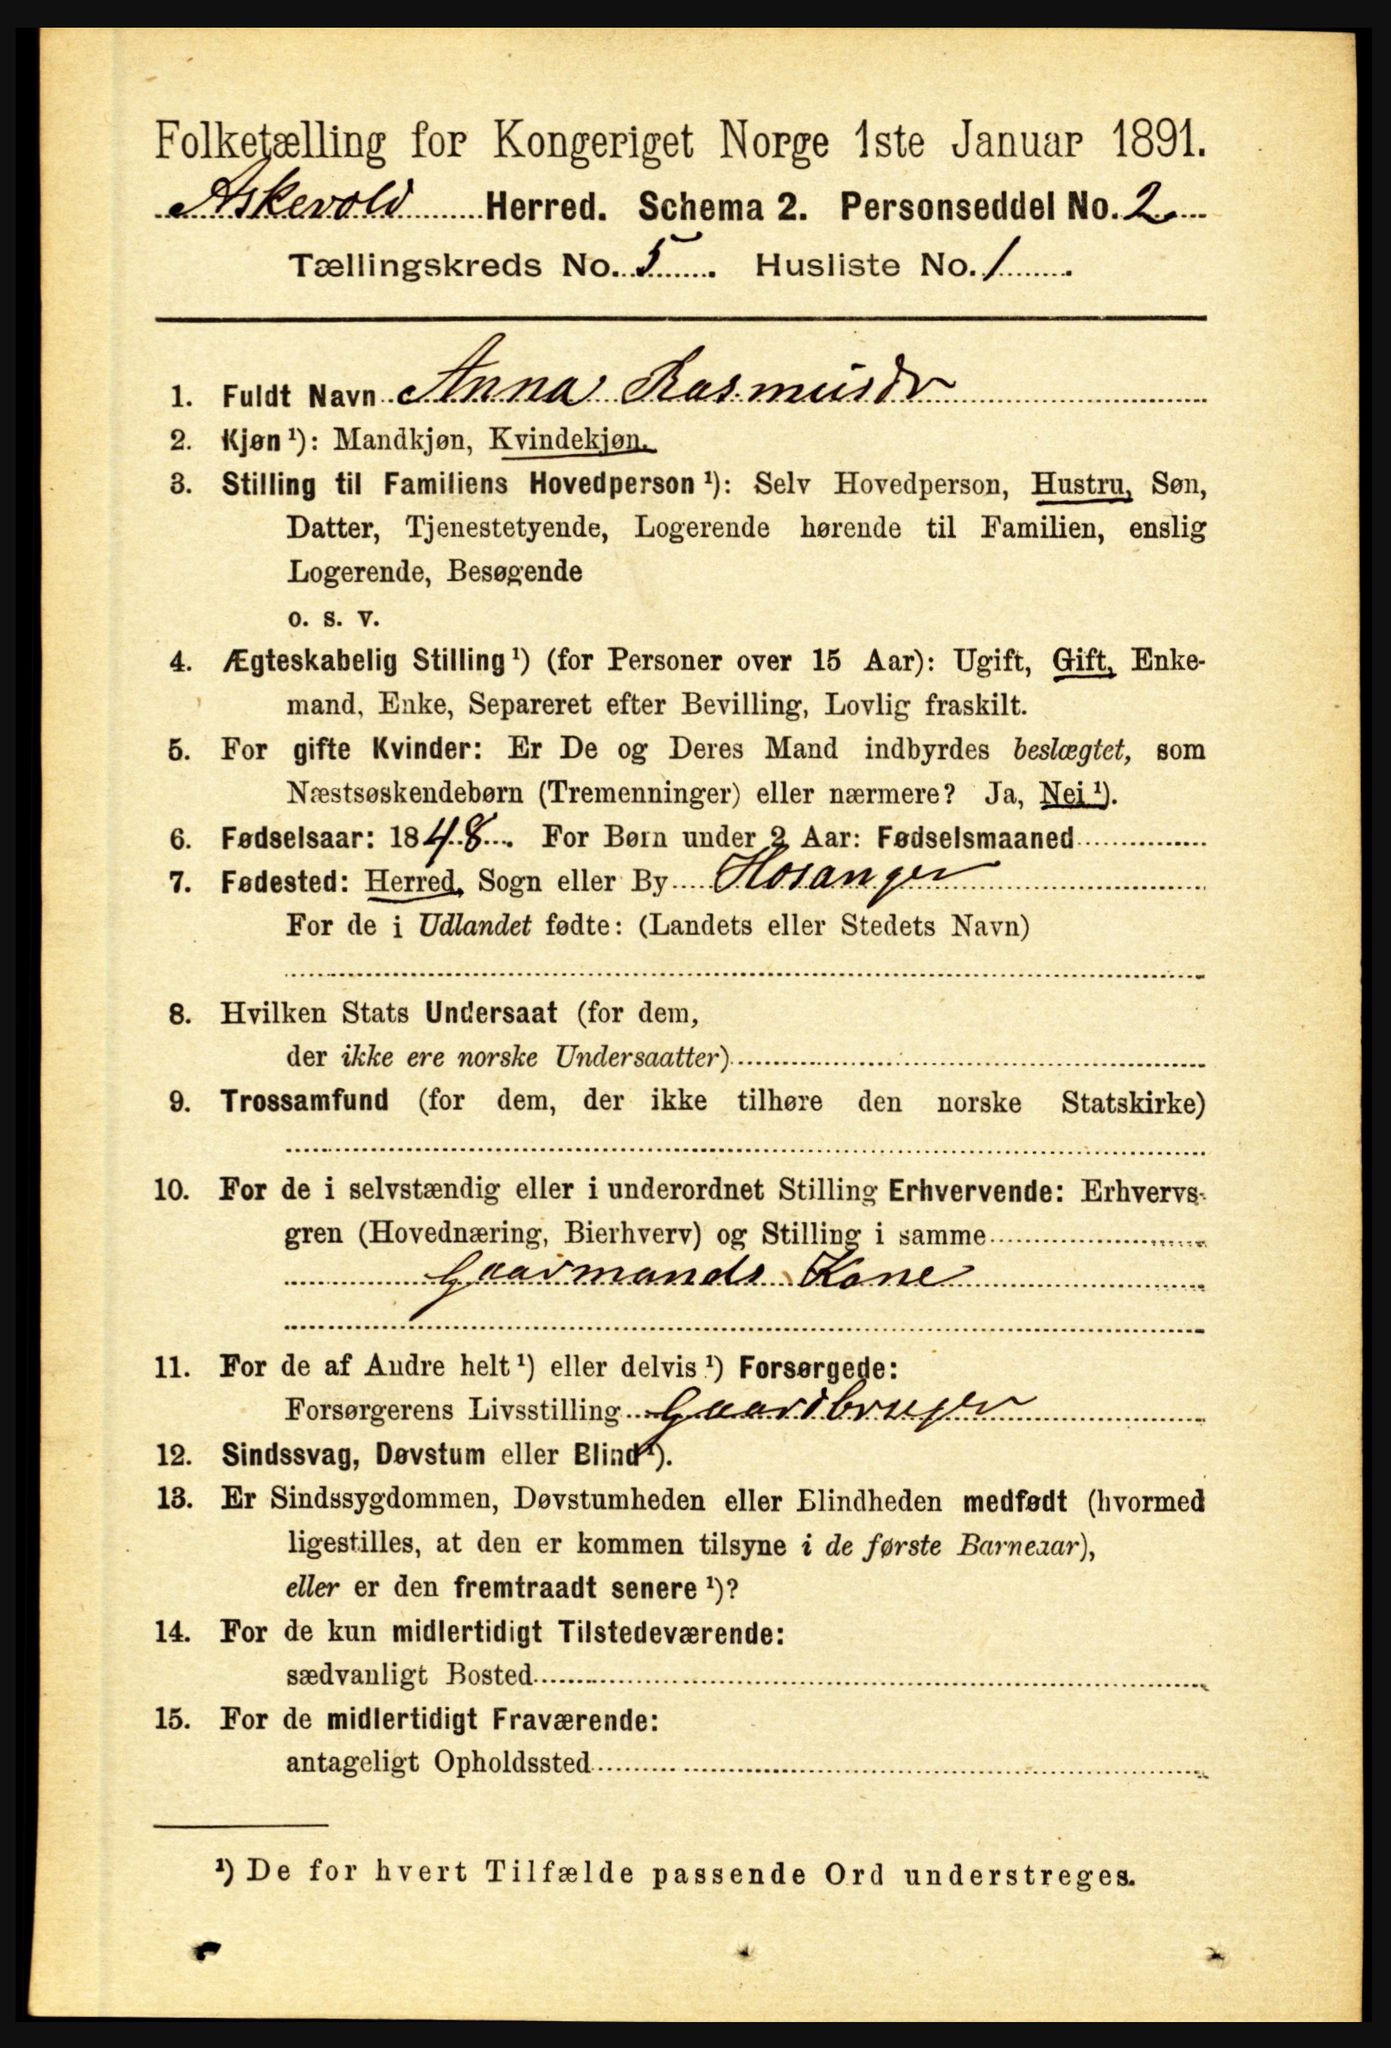 Folketælling for Kongeriget Norge 1ste Januar 1891.
Askevold Herred. Schema 2. Personseddel No. 2
Tællingskreds No. 5. Husliste No. 1.
1. Fuldt Navn Anna Rasmusdr
2. Kjøn ¹): Mandkjøn, Kvindekjøn.
3. Stilling til Familiens Hovedperson ¹): Selv Hovedperson, Hustru, Søn,
Datter, Tjenestetyende, Logerende hørende til Familien, enslig
Logerende, Besøgende
o. s. v.
4. Ægteskabelig Stilling ¹) (for Personer over 15 Aar): Ugift, Gift, Enke-
mand, Enke, Separeret efter Bevilling, Lovlig fraskilt.
5. For gifte Kvinder: Er De og Deres Mand indbyrdes beslægtet, som
Næstsøskendebørn (Tremenninger) eller nærmere? Ja, Nei ¹).
6. Fødselsaar: 1848. For Børn under 2 Aar: Fødselsmaaned
7. Fødested: Herred, Sogn eller By Hosanger
For de i Udlandet fødte: (Landets eller Stedets Navn)
8. Hvilken Stats Undersaat (for dem,
der ikke ere norske Undersaatter)
9. Trossamfund (for dem, der ikke tilhøre den norske Statskirke)
10. For de i selvstændig eller i underordnet Stilling Erhvervende: Erhvervs-
gren (Hovednæring, Bierhverv) og Stilling i samme
Gaarmands Kone
11. For de af Andre helt ¹) eller delvis ¹) Forsørgede:
Forsørgerens Livsstilling Gaardbruger
12. Sindssvag, Døvstum eller Blind ¹).
13. Er Sindssygdommen, Døvstumheden eller Blindheden medfødt (hvormed
ligestilles, at den er kommen tilsyne i de første Barneaar),
eller er den fremtraadt senere ¹)?
14. For de kun midlertidigt Tilstedeværende:
sædvanligt Bosted
15. For de midlertidigt Fraværende:
antageligt Opholdssted
¹) De for hvert Tilfælde passende Ord understreges.